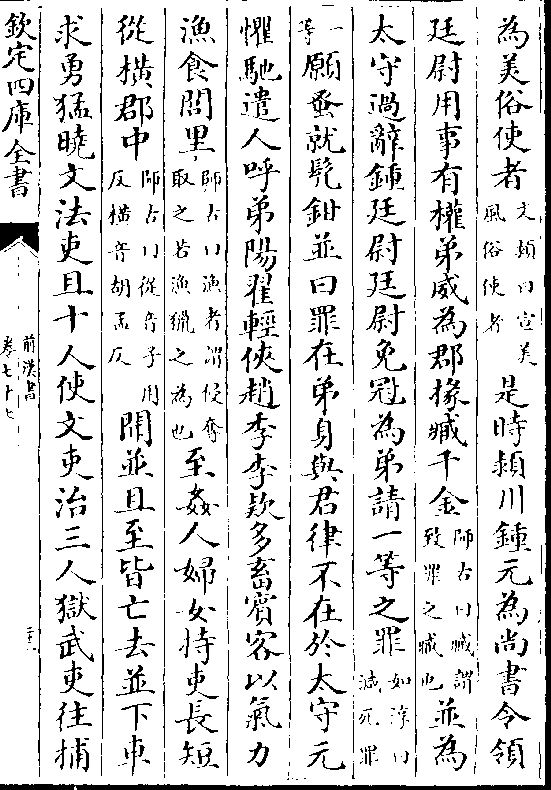 為美俗使者文穎曰宣美風俗使者是時潁川鍾元為尚書令領
廷尉用事有權弟威為郡掾臧千金師古曰臧謂致罪之臧也並為
太守過辭鍾廷尉廷尉免冠為弟請一等之罪如淳曰減死罪
一等願蚤就髡鉗並曰罪在弟身與君律不在於太守元
懼馳遣人呼弟陽翟輕俠趙季李款多畜賓客以氣力
漁食閭里師古曰漁者謂侵奪取之若漁獵之為也至姦人婦女持吏長短
從橫郡中師古曰從音子用反橫音胡孟反聞並且至皆亡去並下車
求勇猛曉文法吏且十人使文吏治三人獄武吏往捕
欽定四庫全書
前漢書
卷七十七